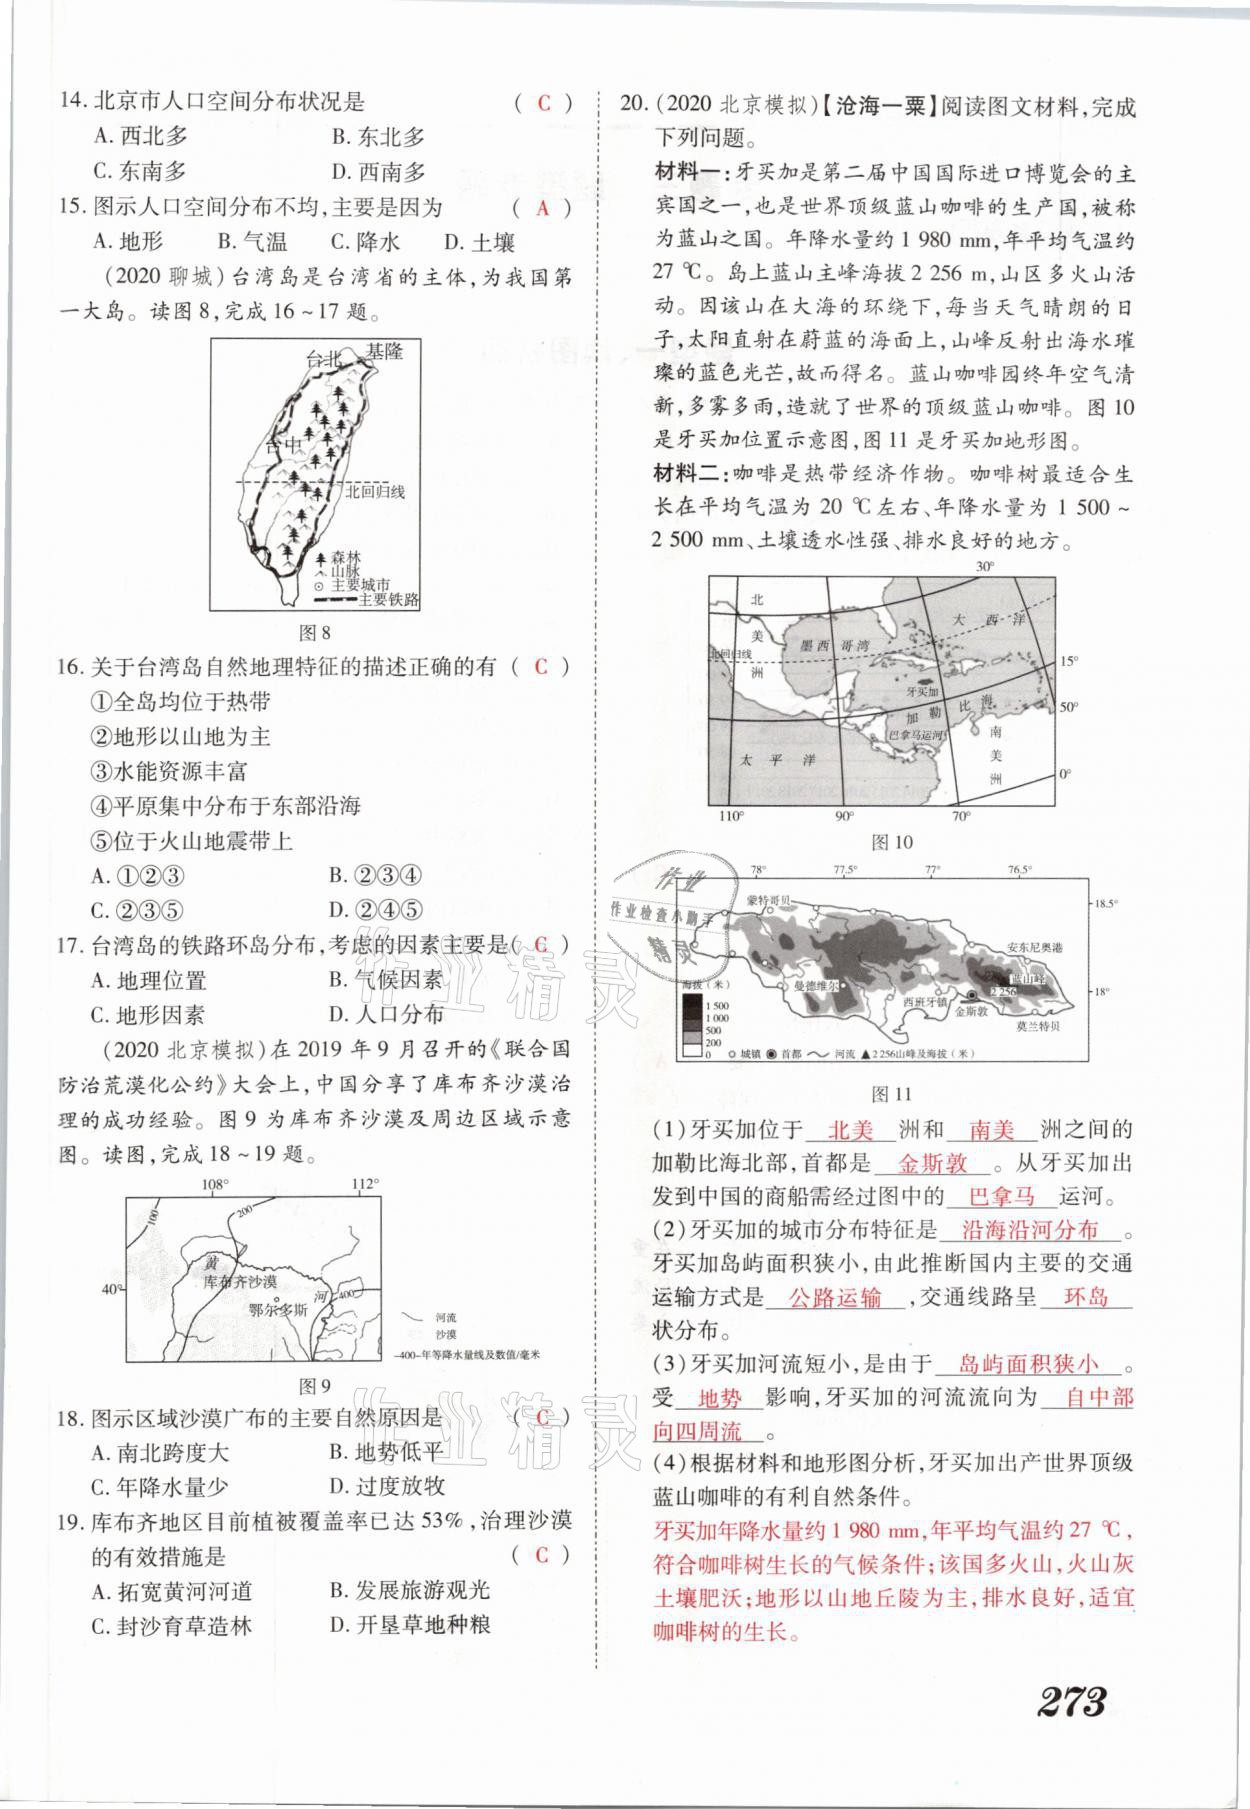 14. 北京市人口空间分布状况是 ( C )
A. 西北多 B. 东北多
C. 东南多 D. 西南多
15. 图示人口空间分布不均,主要是因为 ( A )
A. 地形 B. 气温 C. 降水 D. 土壤
(2020 聊城)台湾岛是台湾省的主体,为我国第
一大岛。读图 8,完成 16 ~ 17 题。
台北 基隆
台中
北回归线
森林
山脉
主要城市
主要铁路
图 8
16. 关于台湾岛自然地理特征的描述正确的有 ( C )
①全岛均位于热带
②地形以山地为主
③水能资源丰富
④平原集中分布于东部沿海
⑤位于火山地震带上
A. ①②③ B. ②③④
C. ②③⑤ D. ②④⑤
17. 台湾岛的铁路环岛分布,考虑的因素主要是( C )
A. 地理位置 B. 气候因素
C. 地形因素 D. 人口分布
(2020 北京模拟)在 2019 年 9 月召开的《联合国
防治荒漠化公约》大会上,中国分享了库布齐沙漠治
理的成功经验。图 9 为库布齐沙漠及周边区域示意
图。读图,完成 18 ~ 19 题。
108° 112°
100 200
黄
40° 库布齐沙漠
鄂尔多斯 河 400
河流
沙漠
-400-年等降水量线及数值/毫米
图 9
18. 图示区域沙漠广布的主要自然原因是 ( C )
A. 南北跨度大 B. 地势低平
C. 年降水量少 D. 过度放牧
19. 库布齐地区目前植被覆盖率已达 53% ,治理沙漠
的有效措施是 ( C )
A. 拓宽黄河河道 B. 发展旅游观光
C. 封沙育草造林 D. 开垦草地种粮
20. (2020 北京模拟)【沧海一粟】阅读图文材料,完成
下列问题。
材料一:牙买加是第二届中国国际进口博览会的主
宾国之一,也是世界顶级蓝山咖啡的生产国,被称
为蓝山之国。年降水量约 1 980 mm,年平均气温约
27 ℃。岛上蓝山主峰海拔 2 256 m,山区多火山活
动。因该山在大海的环绕下,每当天气晴朗的日
子,太阳直射在蔚蓝的海面上,山峰反射出海水璀
璨的蓝色光芒,故而得名。蓝山咖啡园终年空气清
新,多雾多雨,造就了世界的顶级蓝山咖啡。图 10
是牙买加位置示意图,图 11 是牙买加地形图。
材料二:咖啡是热带经济作物。咖啡树最适合生
长在平均气温为 20 ℃左右、年降水量为 1 500 ~
2 500 mm、土壤透水性强、排水良好的地方。
30°
北 大 西 洋
美 墨 西 哥 湾
北回归线 15°
洲
牙买加
加 勒 比 海 50°
巴拿马运河 南
太 平 洋 美
洲 0°
110° 90° 70°
图 10
78° 77.5° 77° 76.5°
蒙特哥贝 18.5°
安东尼奥港
蓝山峰
曼德维尔 2 256 18°
西班牙镇 金斯敦 莫兰特贝
海拔(米)
1 500
1 000
500
200
0 城镇 首都 河流 ▲2 256山峰及海拔(米)
图 11
(1)牙买加位于 北美 洲和 南美 洲之间的
加勒比海北部,首都是 金斯敦 。从牙买加出
发到中国的商船需经过图中的 巴拿马 运河。
(2)牙买加的城市分布特征是 沿海沿河分布 。
牙买加岛屿面积狭小,由此推断国内主要的交通
运输方式是 公路运输 ,交通线路呈 环岛
状分布。
(3)牙买加河流短小,是由于 岛屿面积狭小 。
受 地势 影响,牙买加的河流流向为 自中部
向四周流 。
(4)根据材料和地形图分析,牙买加出产世界顶级
蓝山咖啡的有利自然条件。
牙买加年降水量约 1 980 mm,年平均气温约 27 ℃,
符合咖啡树生长的气候条件;该国多火山,火山灰
土壤肥沃;地形以山地丘陵为主,排水良好,适宜
咖啡树的生长。
作业
作业检查小助手
精灵
作业精灵
作业精灵
273